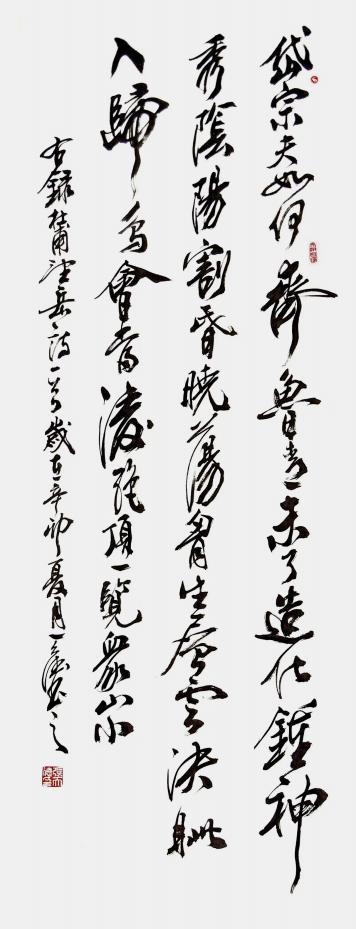 岱宗夫如何齊魯青未了造化鍾神
秀陰陽割昏曉蕩胷生層雲決眥
入歸鳥會當凌絕頂一覽眾山小
右錄杜甫望岳詩一首歲在辛卯夏月一濤書之